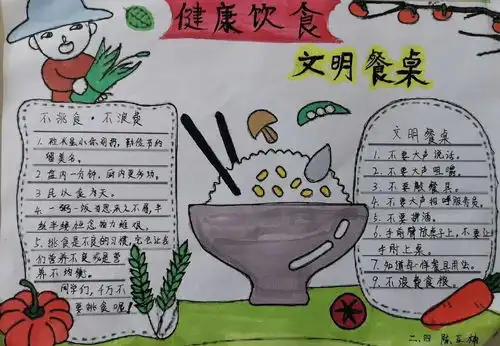 健康饮食
文明餐桌
不挑食·不浪费
1. 粒米虽小你莫弃, 勤俭节约
留美名。
2. 盘内一分钟, 田内更多功。
3. 民以食为天。
4. 一粥一饭当思来之不易, 半
丝半缕恒念物力维艰。
5. 挑食是不良的习惯, 它会让我
们营养不良或是营
养不均衡。
同学们, 千万不
要挑食喔!
文明餐桌
1. 不要大声说话。
2. 不要大声咀嚼。
3. 不要敲餐具。
4. 不要大声招呼服务员。
5. 不要挑菜。
6. 手前臂靠桌子上, 不要让
手肘上桌。
7. 知道每一件餐具用法。
9. 不浪费食粮。
二.四